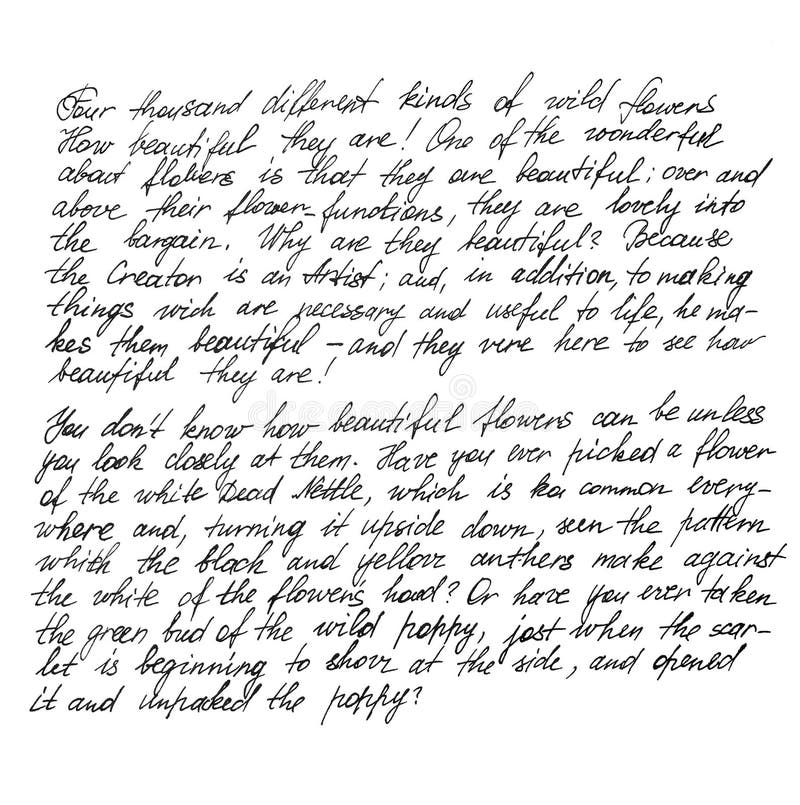 Four thousand different kinds of wild flowers
How beautiful they are! One of the wonderful
about flowers is that they are beautiful; over and
above their flower-functions, they are lovely into
the bargain. Why are they beautiful? Because
the Creator is an Artist; and, in addition, to making
things wich are necessary and useful to life, he ma-
kes them beautiful – and they vere here to see how
beautiful they are!
You don't know how beautiful flowers can be unless
you look closely at them. Have you ever picked a flower
of the white Dead Nettle, which is so common every-
where and, turning it upside down, seen the pattern
which the black and yellow anthers make against
the white of the flower's hood? Or have you ever taken
the green bud of the wild poppy, jost when the scar-
let is beginning to show at the side, and opened
it and unpacked the poppy?
dreamstime